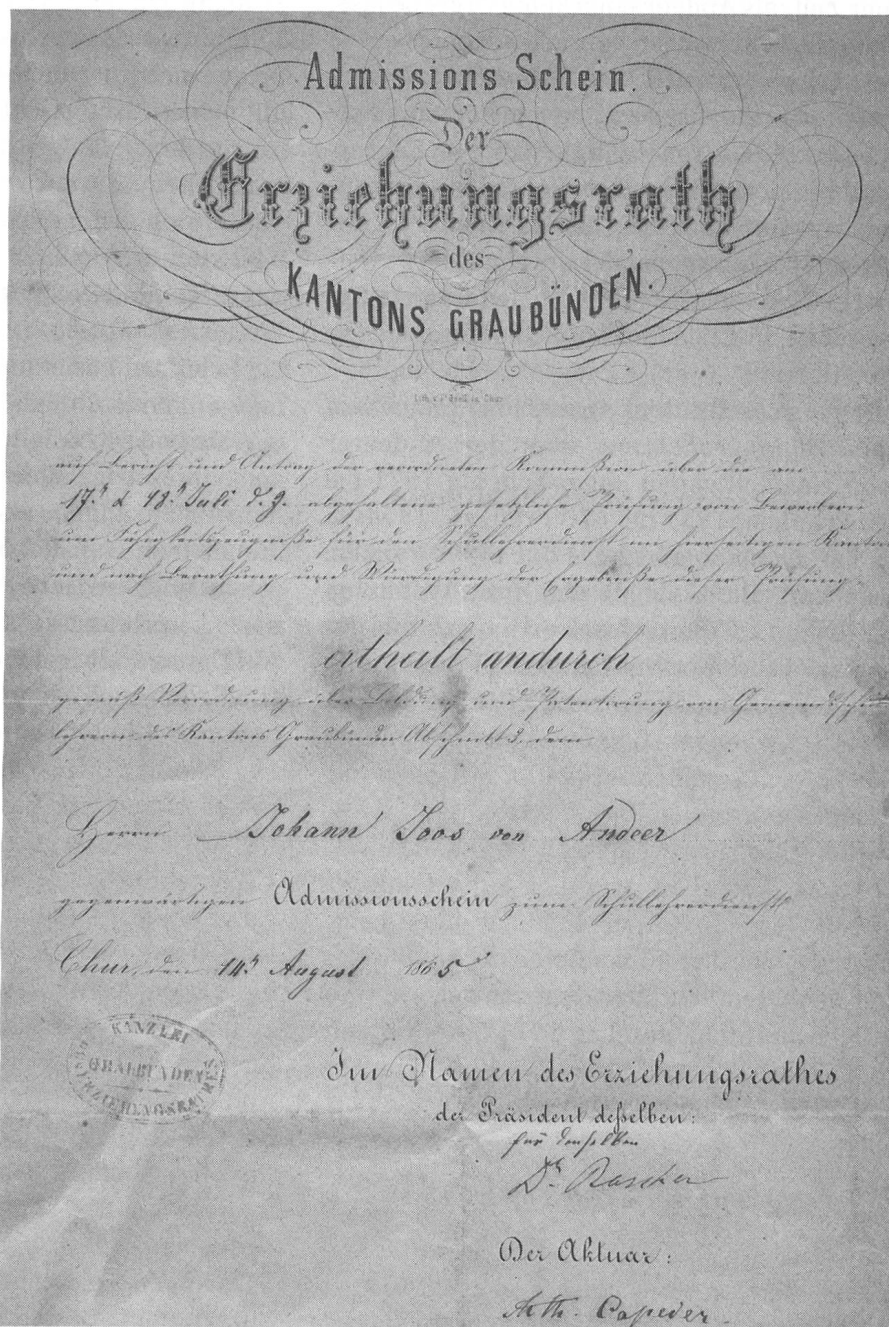 Admissions Schein.
Der
Erziehungsrath
des
KANTONS GRAUBÜNDEN.
auf Bericht und Antrag der verordneten Kommißion über die am
17.ⁿ & 18.ⁿ Juli d. J. abgehaltene gesetzliche Prüfung von Bewerbern
um Fähigkeitszeugniße für den Schullehrerdienst im hierseitigen Kanton
und nach Berathung und Würdigung der Ergebniße dieser Prüfung
ertheilt andurch
gemäß Verordnung über Bildung und Patentirung von Gemeindsschul
lehrern des Kantons Graubünden Abschnitt 3, dem
Herrn Johann Joos von Andeer
gegenwärtigen Admissionsschein zum Schullehrerdienst
Chur, den 14ⁿ August 1865
KANZLEI
GRAUBÜNDEN
ERZIEHUNGSRATH
Im Namen des Erziehungsrathes
der Präsident deſselben:
für denselben
Dr. Rascher
Der Aktuar:
Capeder